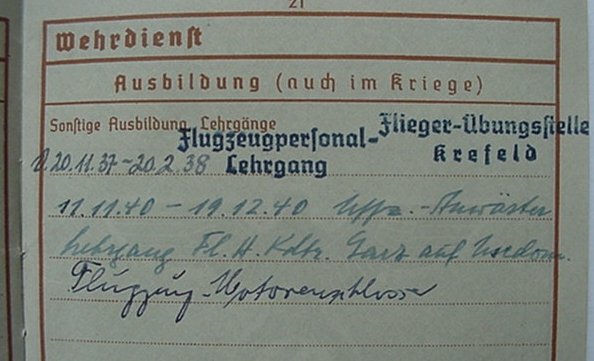 21
Wehrdienst
Ausbildung (auch im Kriege)
Sonstige Ausbildung, Lehrgänge
Flugzeugpersonal-
Lehrgang
Flieger-Übungsstelle
Krefeld
v. 20.11.37-20.2.38
11.11.40 - 19.12.40 Uffz.-Anwärter
Lehrgang Fl. H. Kdtr. Garz auf Usedom.
Flugzeug-Motorenschlosser